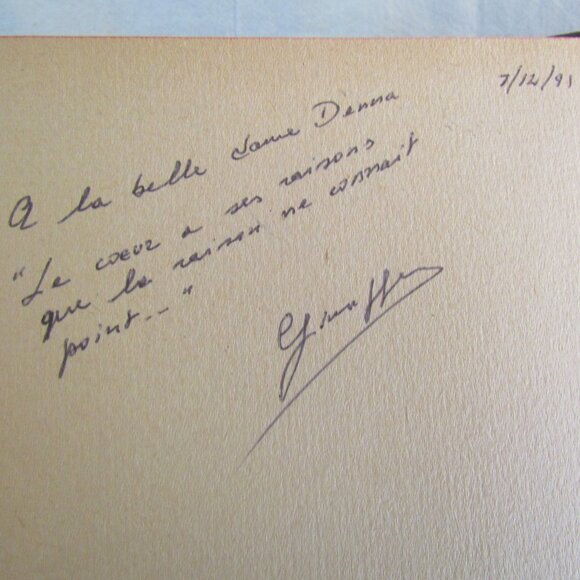 7/12/91
A la belle dame Denna
"Le coeur a ses raisons
que la raison ne connait
point..."